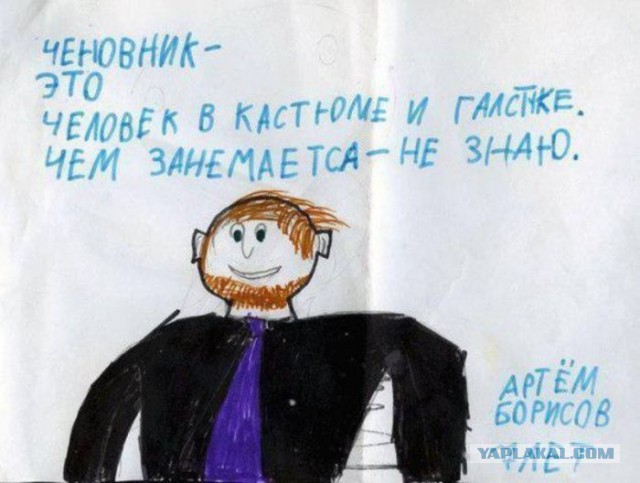 ЧЕНОВНИК –
ЭТО
ЧЕЛОВЕК В КАСТЮМЕ И ГАЛСТУКЕ.
ЧЕМ ЗАНЕМАЕТСА – НЕ ЗНАЮ.
АРТЁМ
БОРИСОВ
ЛЕТ
YAPLAKAL.COM